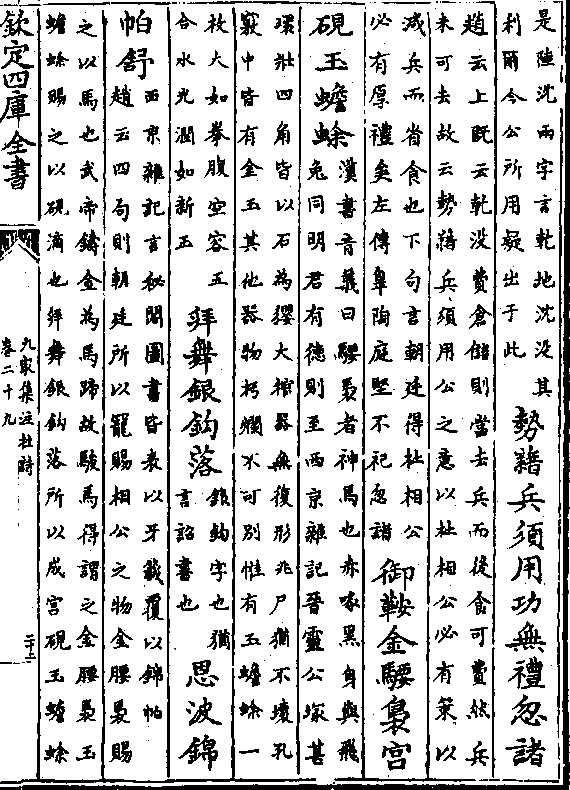 是陸沈兩字言乾地沈没其
利爾今公所用疑出于此
勢藉兵須用功無禮忽諸
趙云上既云乾没費倉儲則當去兵而後食可費然兵
未可去故云勢藉兵須用公之意以杜相公必有策以
減兵而省食也下句言朝廷得杜相公
必有厚禮矣左傳臯陶庭堅不祀忽諸
御鞍金騕褭宫
硯玉蟾蜍
漢書音義曰騕褭者神馬也赤喙黑身與飛
兔同明君有德則至西京雜記晉靈公塚甚
瓌壯四角皆以石為玃犬捧器無復形兆尸猶不壞孔
竅中皆有金玉其他器物朽爛不可别惟有玉蟾蜍一
枚大如拳腹空容五
合水光潤如新玉
拜舞銀鈎落
銀鈎字也猶
言詔書也
恩波錦
帕舒
西京雜記言秘閣圖書皆表以牙籖覆以錦帕
趙云四句則朝廷所以寵賜相公之物金腰褭賜
之以馬也武帝鑄金為馬蹄故駿馬得謂之金腰褭玉
蟾蜍賜之以硯滴也拜舞銀鈎落所以成宫硯玉蟾蜍
欽定四庫全書
九家集注杜詩
卷二十九
二十二